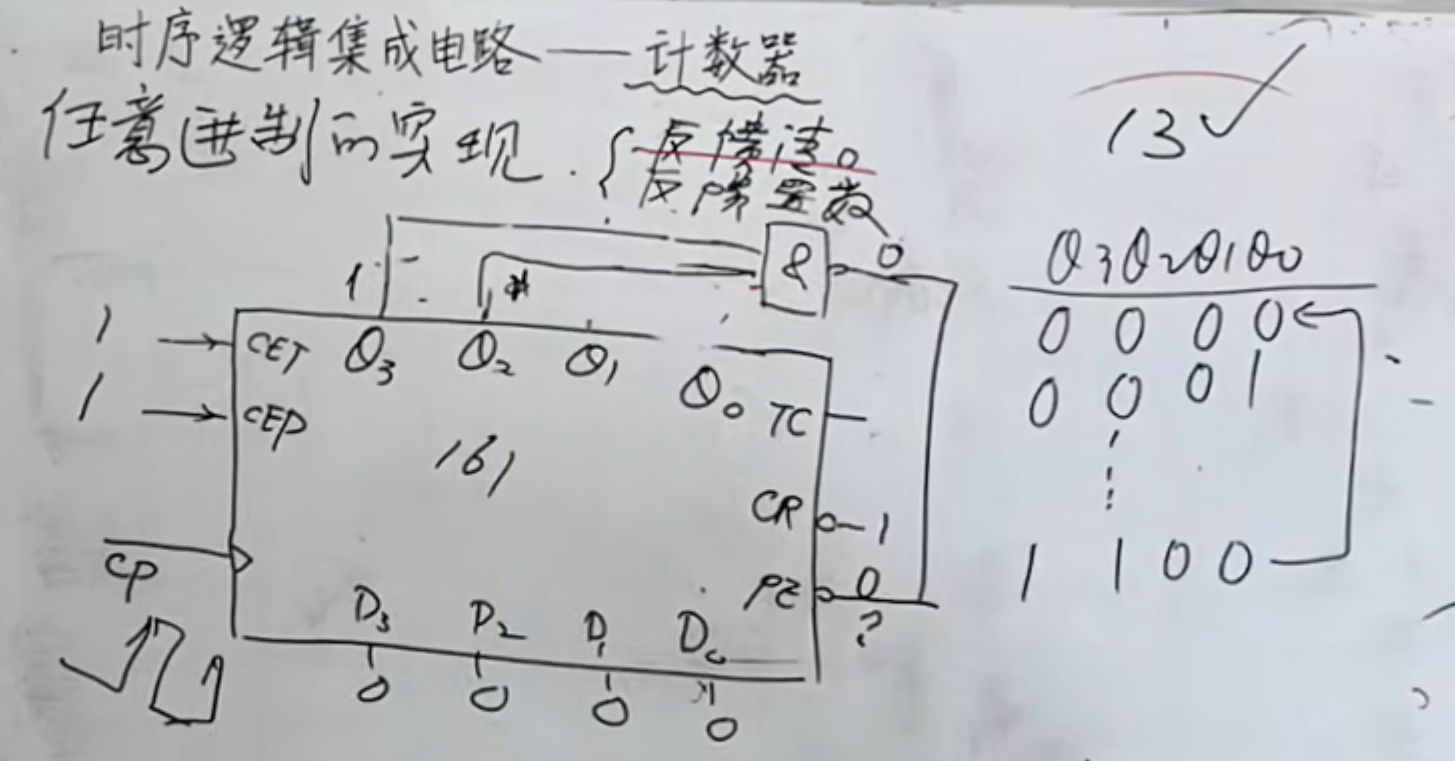 时序逻辑集成电路——计数器
任意进制的实现.{反馈清0
反馈置数
13✓
& 0
Q3Q2Q1Q0
1 1
0 0 0 0
1 CET Q3 Q2 Q1 Q0
0 0 0 1
1 CEP TC
161
CR 1
1 1 0 0
CP PE 0
?
D3 D2 D1 D0
0 0 0 0